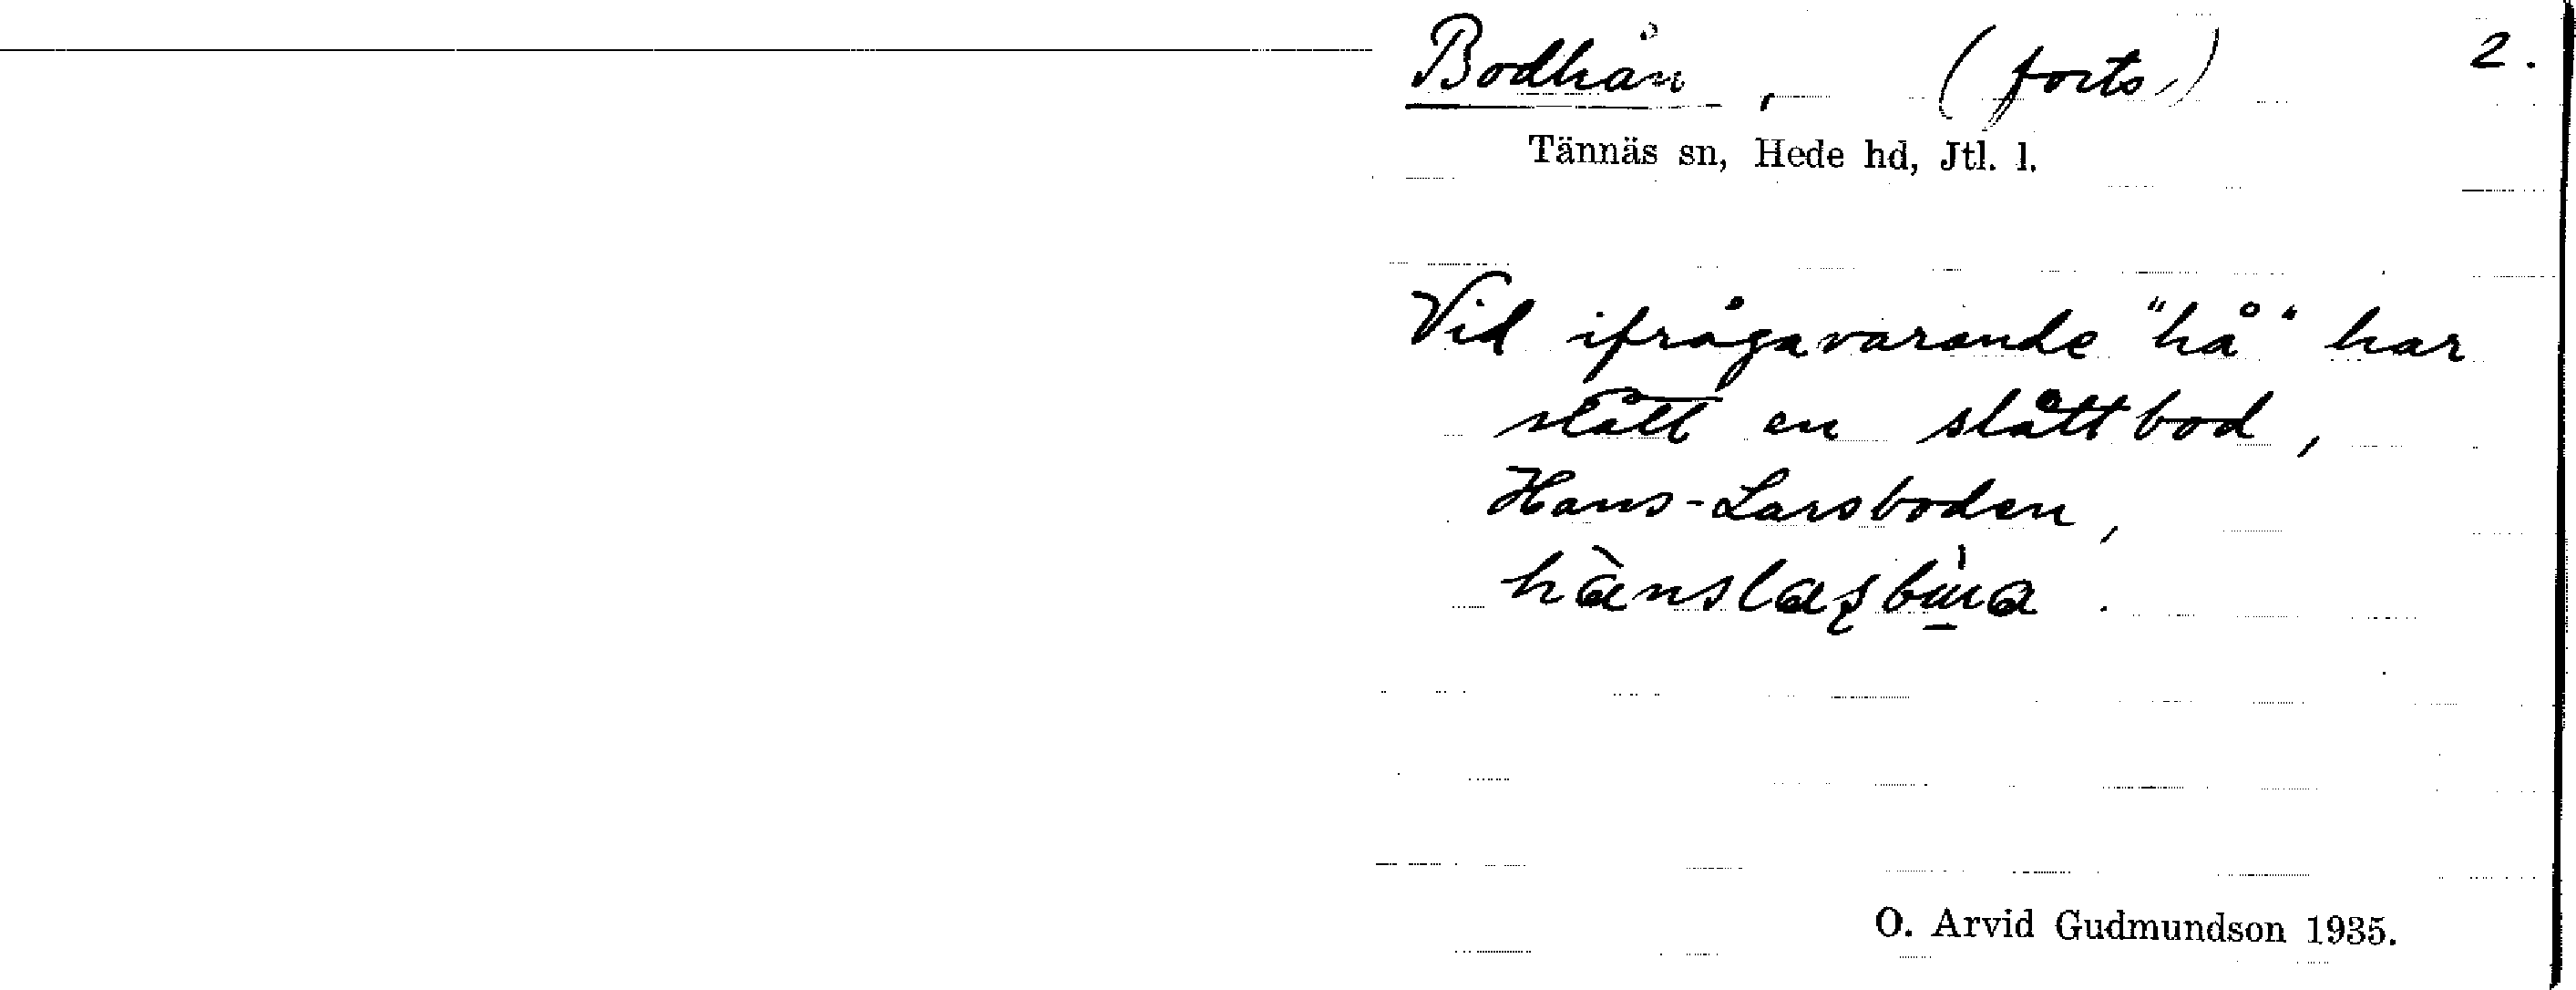 Bodhån, (forts.) 2.
Tännäs sn, Hede hd, Jtl. l.
Vid ifrågavarande "hå" har
stått en slåttbod,
Hans-Larsboden,
O. Arvid Gudmundson 1935.